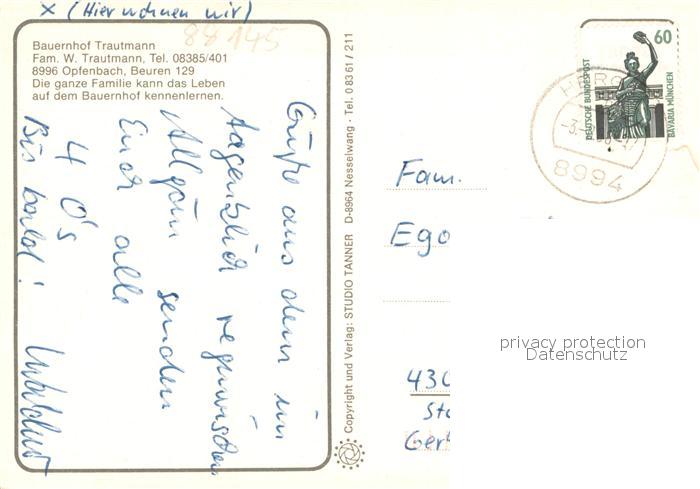 x (Hier wohnen wir)
88145
Bauernhof Trautmann
Fam. W. Trautmann, Tel. 08385/401
8996 Opfenbach, Beuren 129
Die ganze Familie kann das Leben
auf dem Bauernhof kennenlernen.
Grüße aus dem im
Augenblick regnerischen
Allgäu senden
Euch alle
4 O's
Bis bald!
Copyright und Verlag: STUDIO TANNER D-8964 Nesselwang · Tel. 0 83 61 / 211
60
DEUTSCHE BUNDESPOST
BAVARIA MÜNCHEN
8994
Fam.
Ego
430
privacy protection
Datenschutz